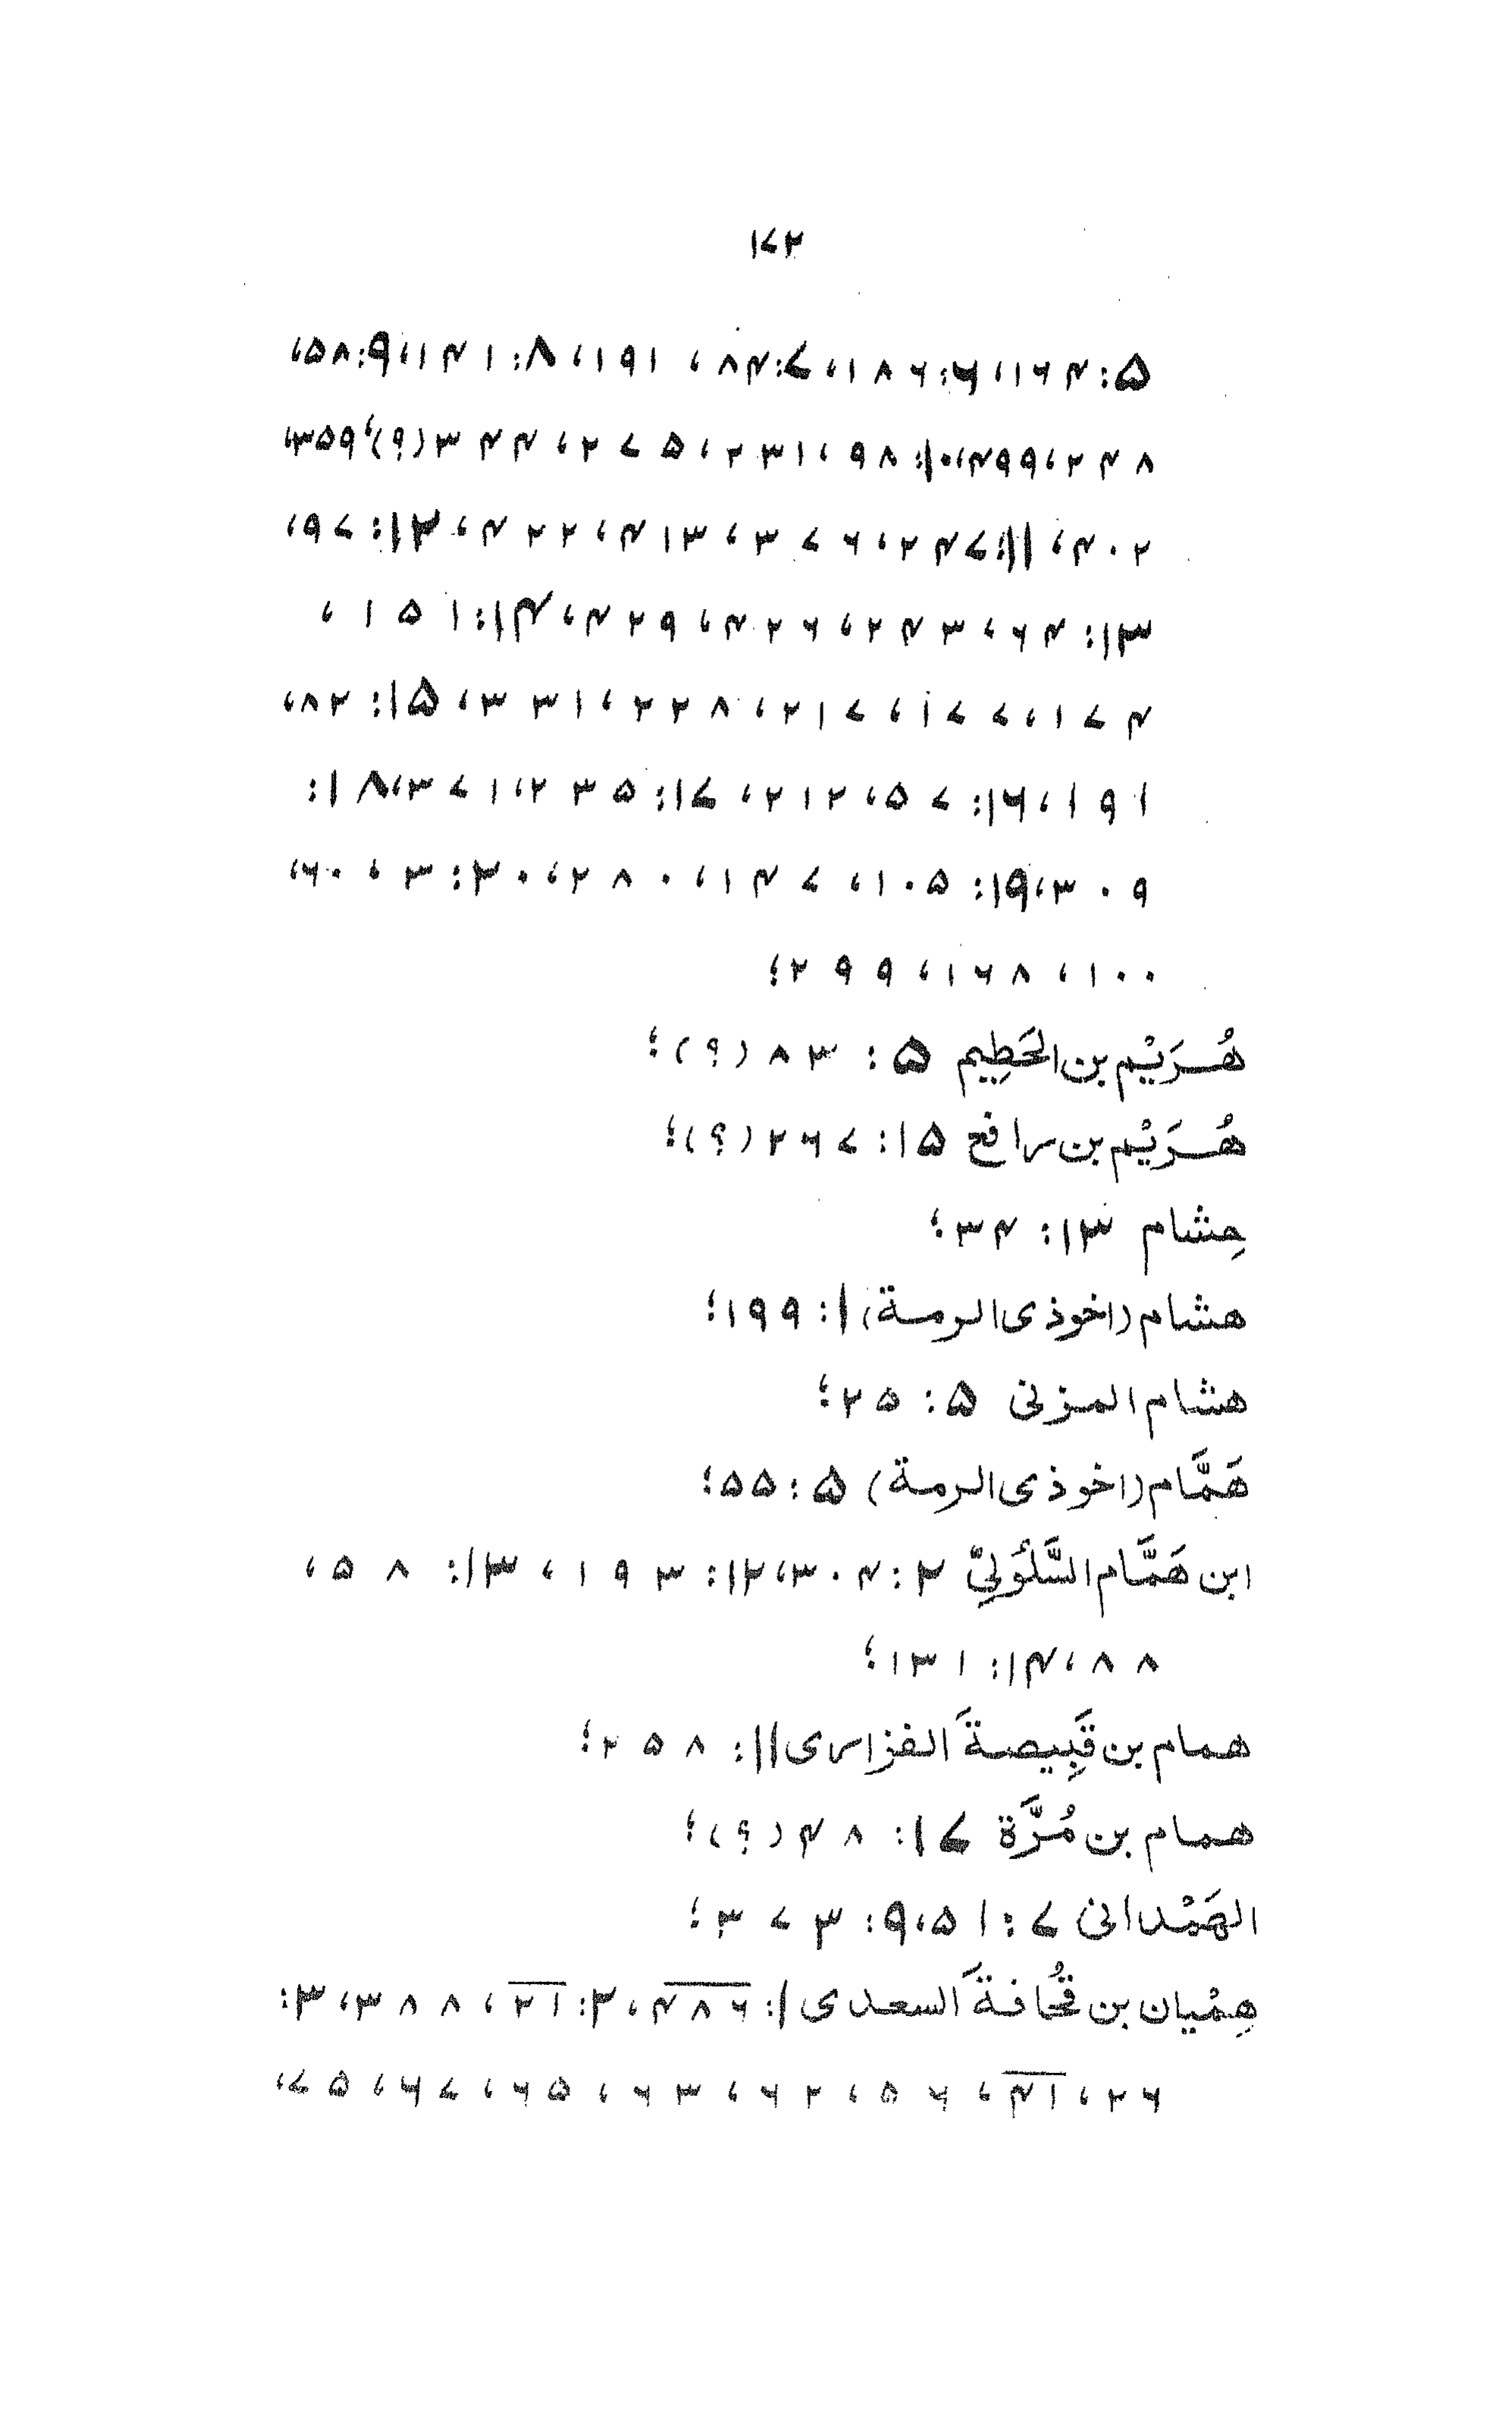 ۱۷۲
۵: ۱۶۴، ۶: ۱۸۶، ۷: ۸۴، ۱۹۱، ۸: ۱۴۱، ۹: ۵۸،
۲۴۸، ۴۹۹، ۱۰: ۹۸، ۲۳۱، ۲۷۵، ۳۴۴ (؟)، ۳۵۹،
۴۰۲، ۱۱: ۲۴۷، ۳۷۶، ۴۱۳، ۴۲۲، ۱۲: ۹۷،
۱۳: ۶۴، ۲۴۳، ۴۲۶، ۴۲۹، ۱۴: ۱۵۱،
۱۷۴، ۱۷۷، ۲۱۷، ۲۲۸، ۳۳۱، ۱۵: ۸۲،
۱۹۱، ۱۶: ۵۷، ۲۱۲، ۱۷: ۲۳۵، ۳۷۱، ۱۸:
۳۰۹، ۱۹: ۱۰۵، ۱۴۷، ۲۸۰، ۲۰: ۳، ۶۰،
۱۰۰، ۱۶۸، ۲۹۹؛
هُرَيْم بن الحَطِيم ۵: ۸۳ (؟)؛
هُرَيْم بن رافع ۱۵: ۲۶۷ (؟)؛
حِشام ۱۳: ۳۴؛
هشام (اخوذى الرمة) ۱: ۱۹۹؛
هشام المزنى ۵: ۲۵؛
هَمَّام (اخوذى الرمة) ۵: ۵۵؛
ابن هَمَّام السَّلُوَلِىّ ۲: ۳۰۴، ۱۲: ۱۹۳، ۱۳: ۵۸،
۸۸، ۱۴: ۱۳۱؛
همام بن قَبِيصةَ الفزارى ۱۱: ۲۵۸؛
همام بن مُرَّة ۱۷: ۴۸ (؟)؛
الهَمْدانى ۷: ۵۱، ۹: ۳۷۳؛
هِمْيان بن قُحَافةَ السعدى ۱: ۴۸۶، ۲: ۲۱، ۳۸۸، ۳:
۲۶، ۴۱، ۵۶، ۶۲، ۶۳، ۶۵، ۶۷، ۷۵،